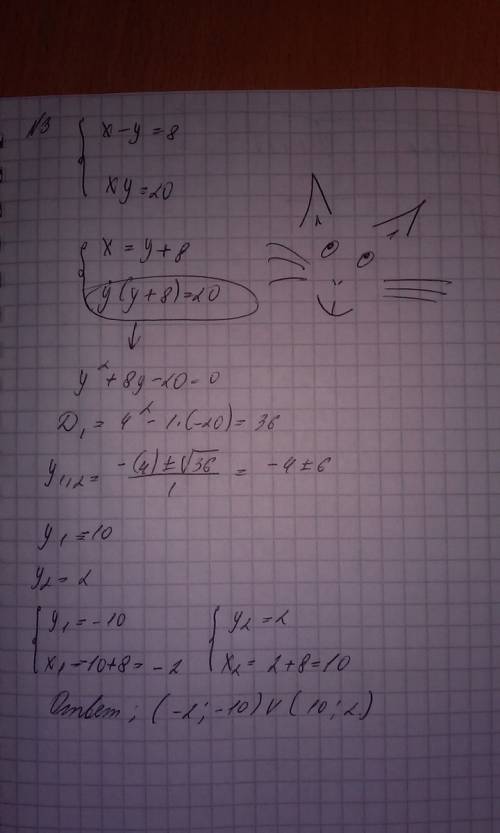 №3
x - y = 8
xy = 20
x = y + 8
y(y+8) = 20
y² + 8y - 20 = 0
D₁ = 4² - 1·(-20) = 36
y₁,₂ = -(4) ± √36 / 1 = -4 ± 6
y₁ = 10
y₂ = 2
y₁ = -10 y₂ = 2
x₁ = -10+8 = -2 x₂ = 2+8 = 10
Ответ; (-2; -10) v (10; 2)